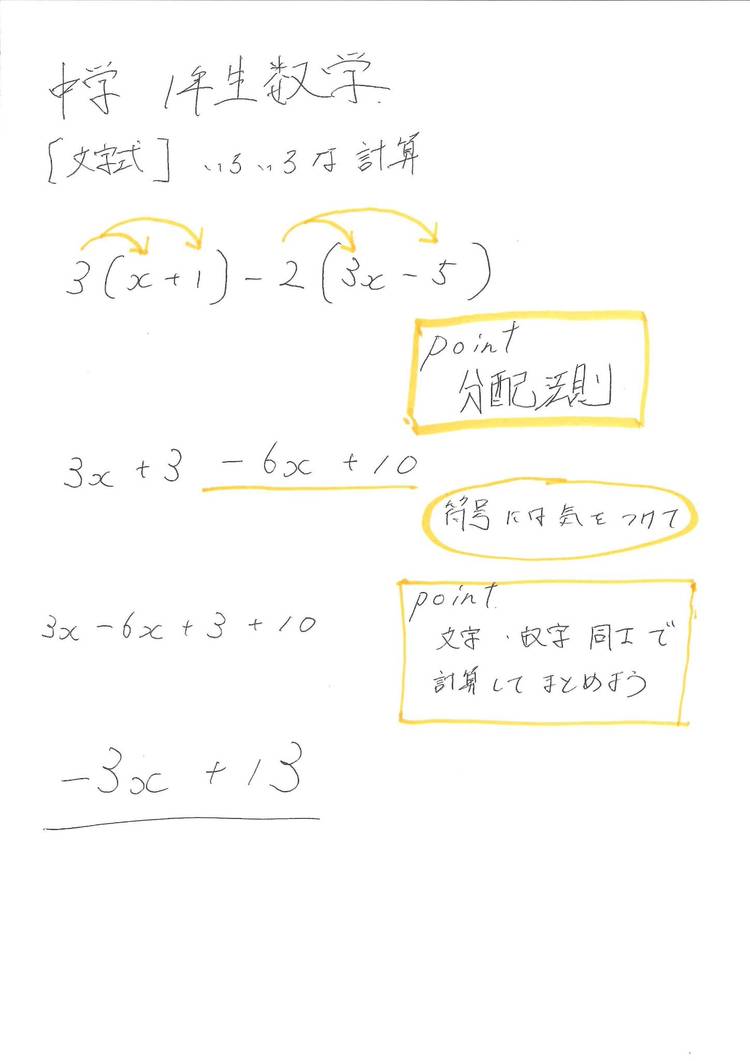 中学 1年生数学
[文字式] いろいろな計算
3(x+1)-2(3x-5)
point
分配法則
3x+3-6x+10
符号には気をつけて
3x-6x+3+10
point
文字・数字同士で
計算してまとめよう
-3x+13